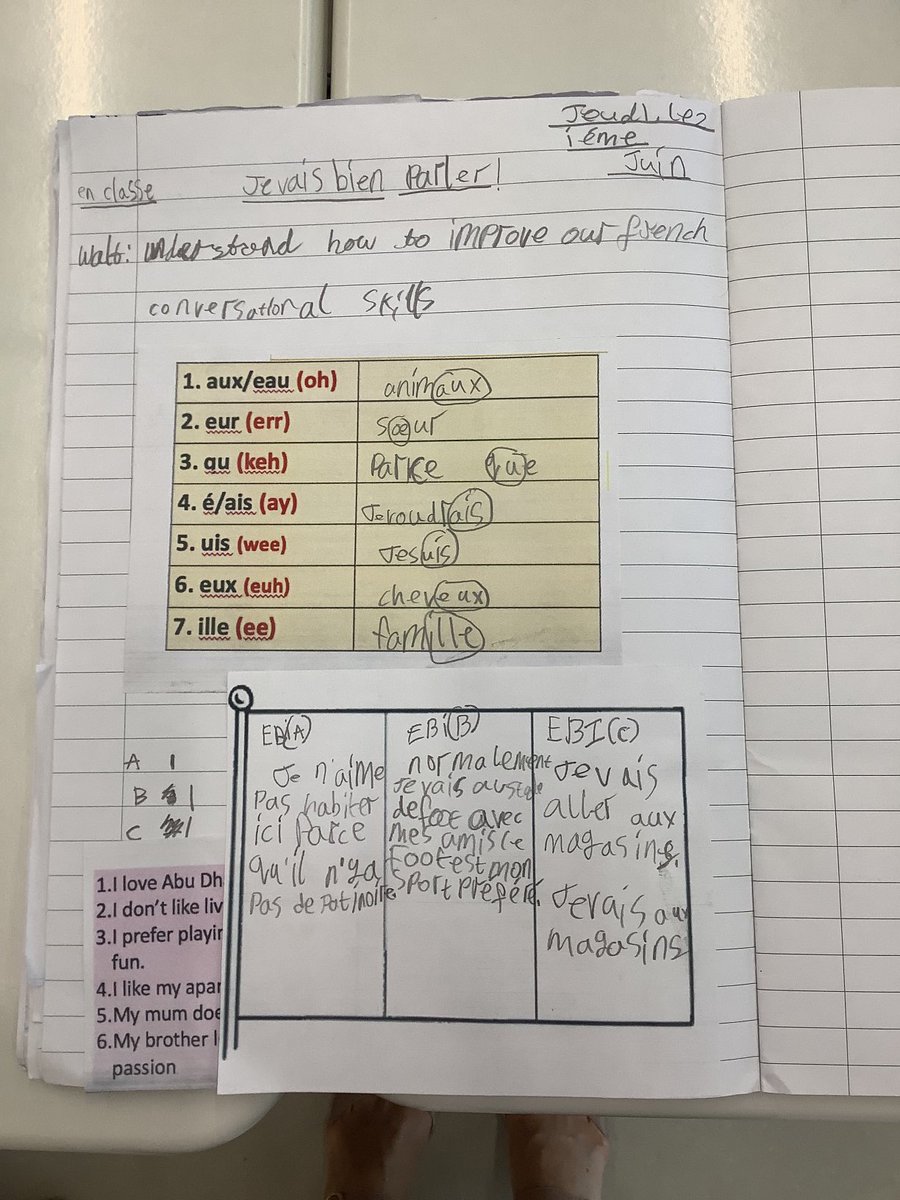 Jeudi, le 2
ième
Juin
en classe
Je vais bien Parler!
Walt: understand how to improve our french
conversational skills
1. aux/eau (oh) animaux
2. eur (err) sœur
3. qu (keh) Parce que
4. é/ais (ay) Jevoudrais
5. uis (wee) Jesuis
6. eux (euh) cheveux
7. ille (ee) famille
EBi(A)
Je n'aime
Pas habiter
ici Parce
qu'il n'ya
Pas de Patinoire
EBi(B)
normalement
Jevais austade
defoot avec
mes amis le
Foot est mon
sport Préféré.
EBI(C)
Jevais
aller aux
magasins.
Jevais aux
magasins
A 1
B 1
C 1
1.I love Abu Dh
2.I don't like liv
3.I prefer playin
fun.
4.I like my apar
5.My mum doe
6.My brother l
passion